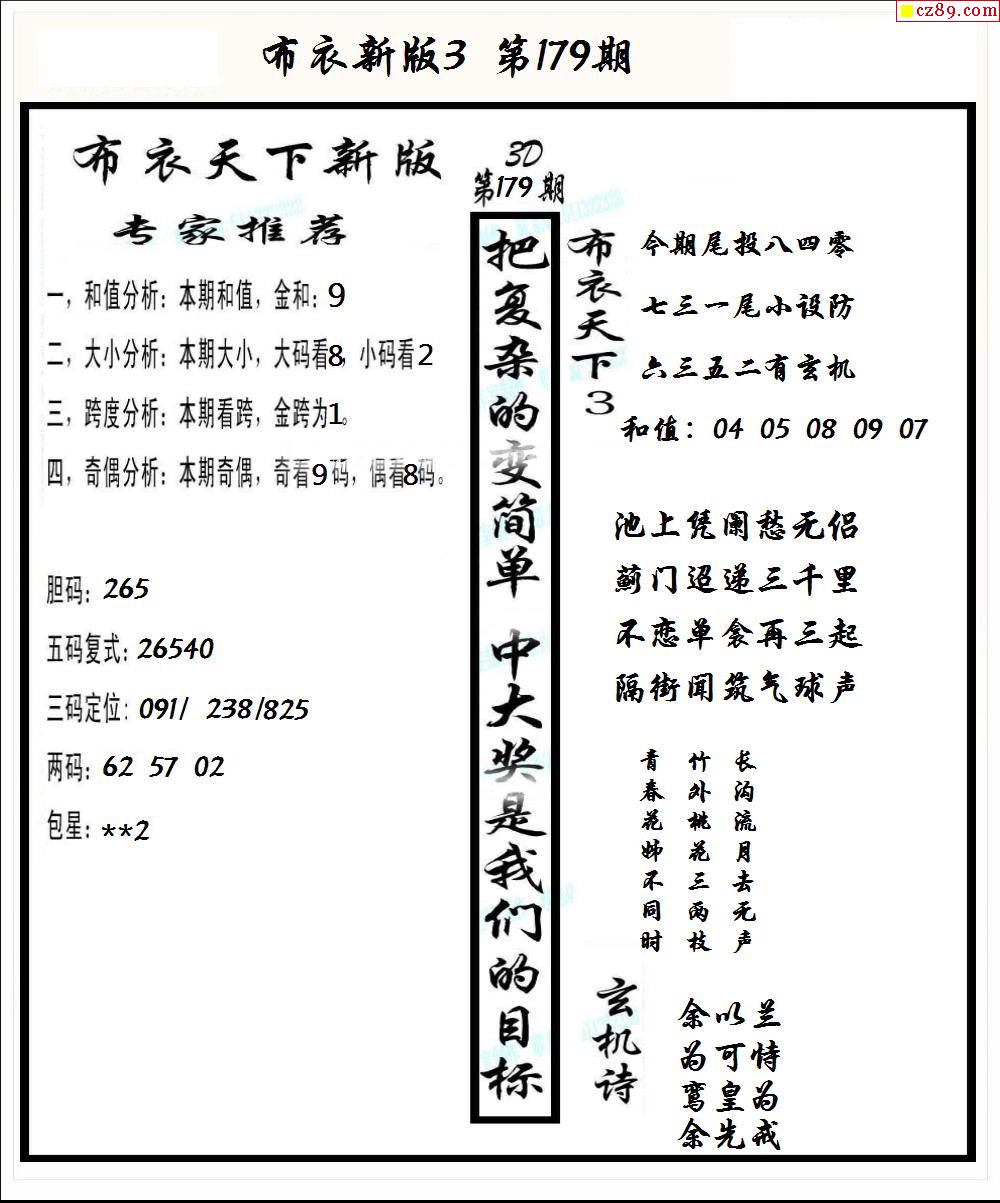 cz89.com
布衣新版3 第179期
布衣天下新版
专家推荐
一，和值分析：本期和值，金和：9
二，大小分析：本期大小，大码看8，小码看2
三，跨度分析：本期看跨，金跨为1。
四，奇偶分析：本期奇偶，奇看9码，偶看8码。
胆码：265
五码复式：26540
三码定位：091/ 238/825
两码：62 57 02
包星：**2
3D
第179期
把复杂的变简单 中大奖是我们的目标
布衣天下3
今期尾投八四零
七三一尾小设防
六三五二有玄机
和值：04 05 08 09 07
池上凭阑愁无侣
蓟门迢递三千里
不恋单衾再三起
隔街闻筑气球声
长沟流月去无声
竹外桃花三两枝
青春花姊不同时
玄机诗
余以兰
为可恃
鸾皇为
余先戒